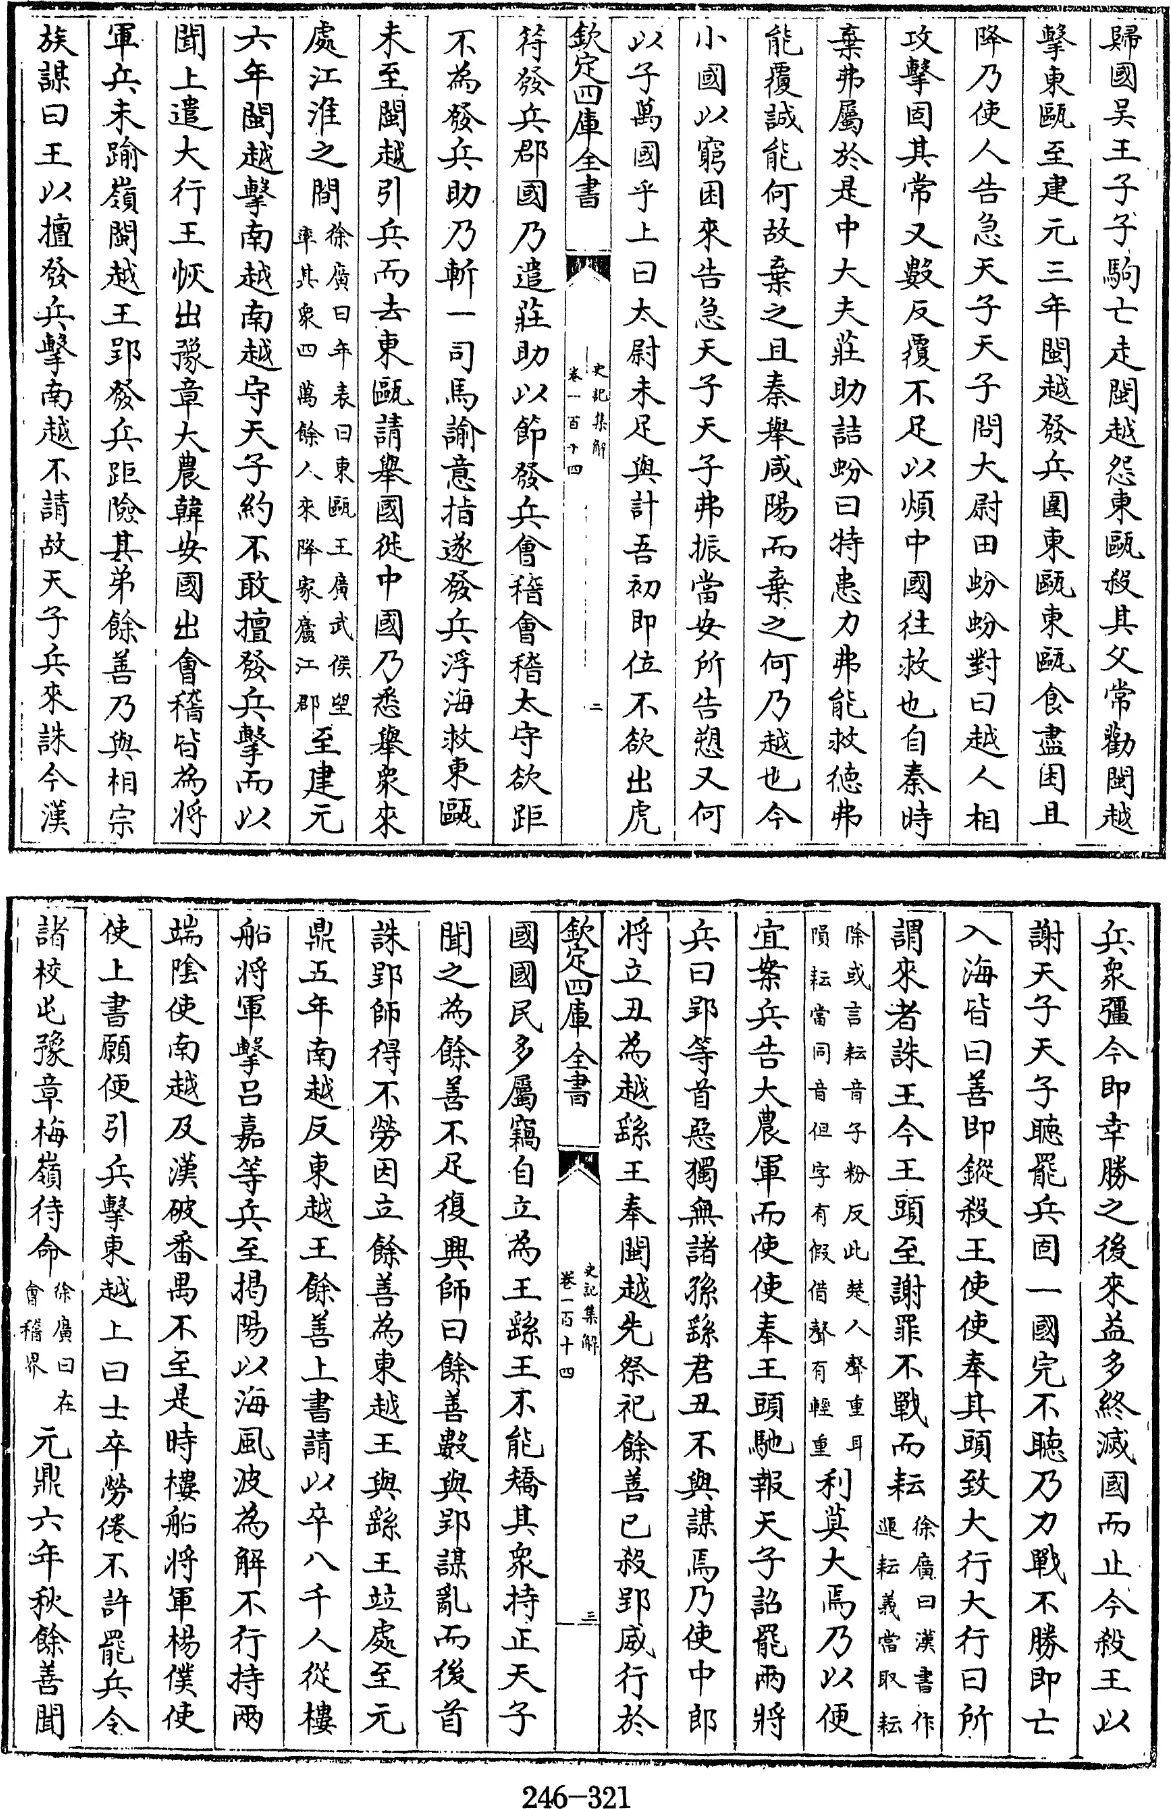 歸國吴王子子駒亡走閩越怨東甌殺其父常勸閩越
擊東甌至建元三年閩越發兵圍東甌東甌食盡困且
降乃使人告急天子天子問大尉田蚡蚡對曰越人相
攻擊固其常又數反覆不足以煩中國往救也自秦時
棄弗屬於是中大夫莊助詰蚡曰特患力弗能救德弗
能覆誠能何故棄之且秦舉咸陽而棄之何乃越也今
小國以窮困來告急天子天子弗振當安所告愬又何
以子萬國乎上曰太尉未足與計吾初即位不欲出虎
欽定四庫全書
史記集解
卷一百十四
二
符發兵郡國乃遣莊助以節發兵會稽會稽太守欲距
不為發兵助乃斬一司馬諭意指遂發兵浮海救東甌
未至閩越引兵而去東甌請舉國徙中國乃悉舉衆來
處江淮之間徐廣曰年表曰東甌王廣武侯望率其衆四萬餘人來降家廬江郡至建元
六年閩越擊南越南越守天子約不敢擅發兵擊而以
聞上遣大行王恢出豫章大農韓安國出會稽皆為將
軍兵未踰嶺閩越王郢發兵距險其弟餘善乃與相宗
族謀曰王以擅發兵擊南越不請故天子兵來誅今漢
兵衆彊今即幸勝之後來益多終滅國而止今殺王以
謝天子天子聽罷兵固一國完不聽乃力戰不勝即亡
入海皆曰善即鏦殺王使使奉其頭致大行大行曰所
謂來者誅王今王頭至謝罪不戰而耘徐廣曰漢書作運耘義當取耘
除或言耘音子粉反此楚人聲重耳隕耘當同音但字有假借聲有輕重利莫大焉乃以便
宜案兵告大農軍而使使奉王頭馳報天子詔罷兩將
兵曰郢等首惡獨無諸孫繇君丑不與謀焉乃使中郎
將立丑為越繇王奉閩越先祭祀餘善已殺郢威行於
欽定四庫全書
史記集解
卷一百十四
三
國國民多屬竊自立為王繇王不能矯其衆持正天子
聞之為餘善不足復興師曰餘善數與郢謀亂而後首
誅郢師得不勞因立餘善為東越王與繇王竝處至元
鼎五年南越反東越王餘善上書請以卒八千人從樓
船將軍擊吕嘉等兵至揭陽以海風波為解不行持兩
端陰使南越及漢破番禺不至是時樓船將軍楊僕使
使上書願便引兵擊東越上曰士卒勞倦不許罷兵令
諸校屯豫章梅嶺待命徐廣曰在會稽界元鼎六年秋餘善聞
246-321